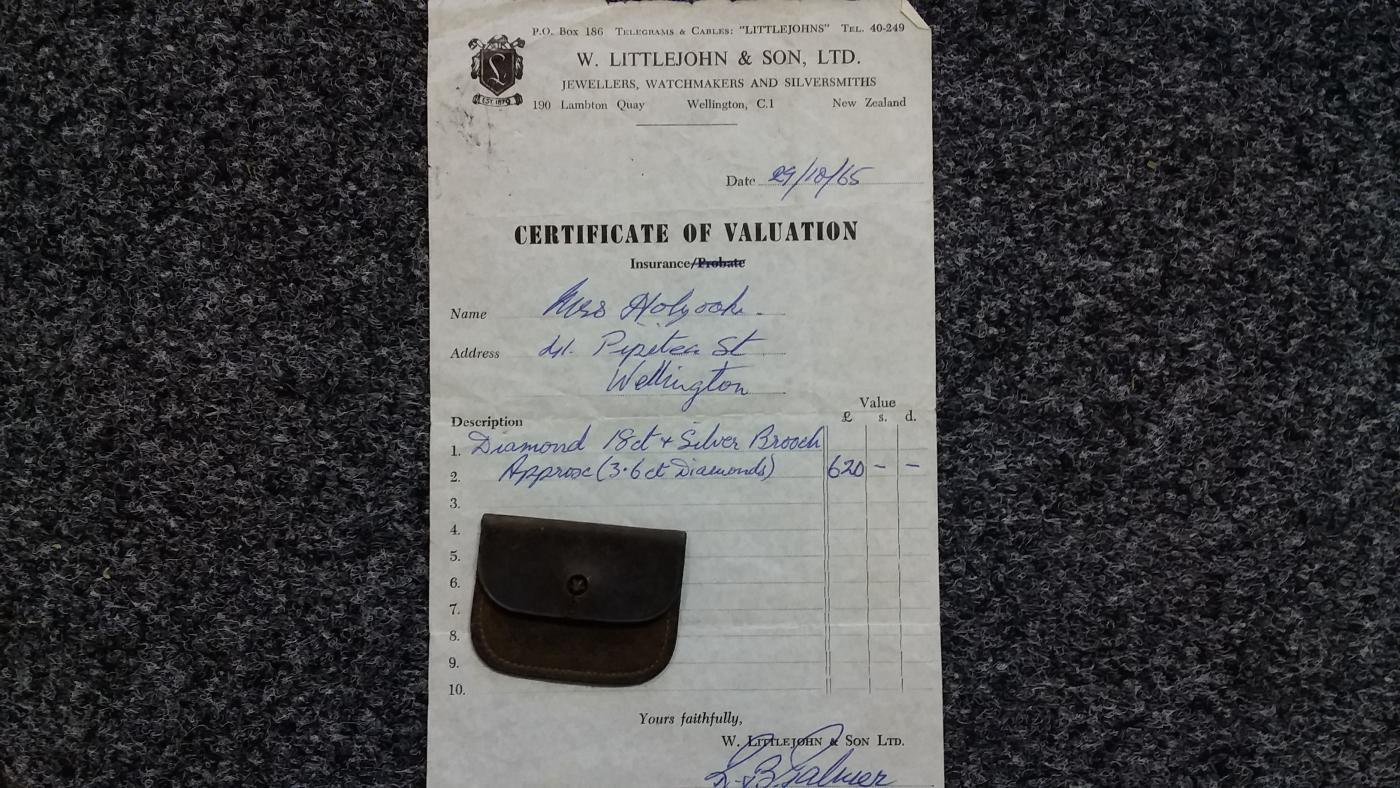 P.O. Box 186 Telegrams & Cables: "LITTLEJOHNS" Tel. 40-249
W. LITTLEJOHN & SON, LTD.
JEWELLERS, WATCHMAKERS AND SILVERSMITHS
190 Lambton Quay Wellington, C.1 New Zealand
L
EST. 1879
Date 29/10/65
CERTIFICATE OF VALUATION
Insurance/Probate
Name Mrs Holyoake
Address 41. Pipitea St
Wellington
Value
Description £ s. d.
1. Diamond 18ct + Silver Brooch
2. Approx (3.6ct Diamonds) 620 - -
3.
4.
5.
6.
7.
8.
9.
10.
Yours faithfully,
W. Littlejohn & Son Ltd.